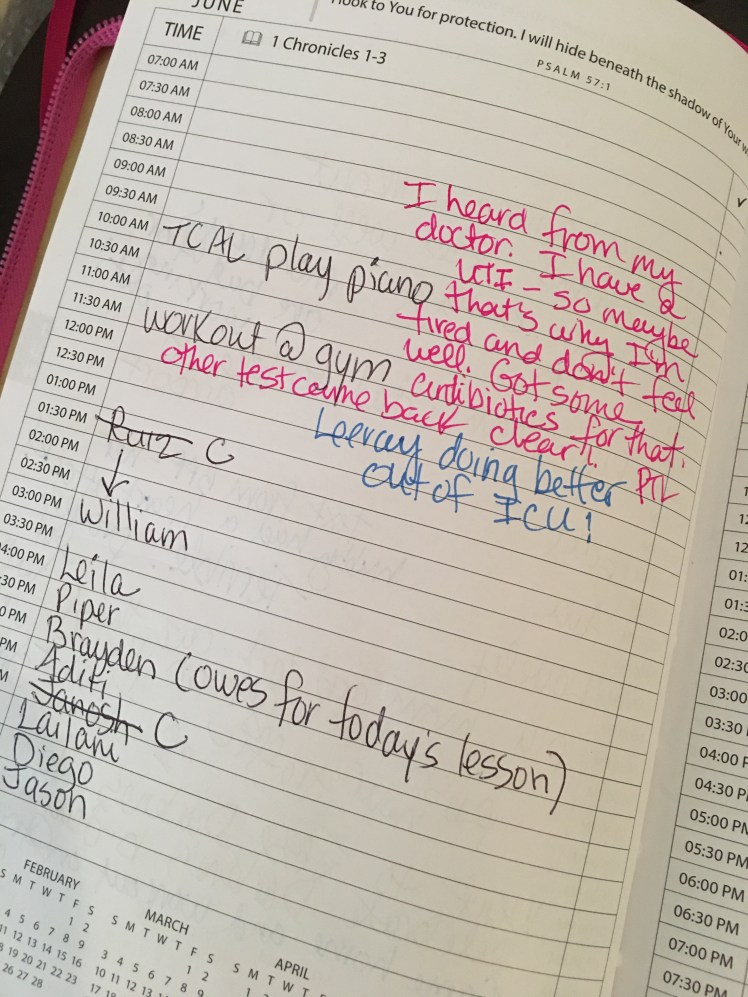 JUNE
look to You for protection. I will hide beneath the shadow of Your
PSALM 57:1
TIME
1 Chronicles 1-3
07:00 AM
07:30 AM
08:00 AM
08:30 AM
09:00 AM
09:30 AM
10:00 AM
10:30 AM
11:00 AM
11:30 AM
12:00 PM
12:30 PM
01:00 PM
01:30 PM
02:00 PM
02:30 PM
03:00 PM
03:30 PM
4:00 PM
30 PM
0 PM
PM
M
I heard from my
doctor. I have a
UTI - so maybe
TCAL play piano
that's why I'm
tired and don't feel
well. Got some
workout @ gym
antibiotics for that.
other test came back clear!! PTL
Leeray doing better
out of ICU!
C
William
Leila
Piper
Brayden (owes for today's lesson)
Aditi
Janosh C
Lailani
Diego
Jason
FEBRUARY
S M T W T F S
1 2
4 5 6 7 8 9
11 12 13 14 15 16
18 19 20 21 22 23
26 27 28
MARCH
S M T W T F S
1 2
3 4 5 6 7 8 9
10 11 12 13 14 15 16
17 18
APRIL
S M T W T F
1
1
12
12
01:
01:3
02:0
02:30
03:00
03:30
04:00 P
04:30 P
05:00 PM
05:30 PM
06:00 PM
06:30 PM
07:00 PM
07:30 PM